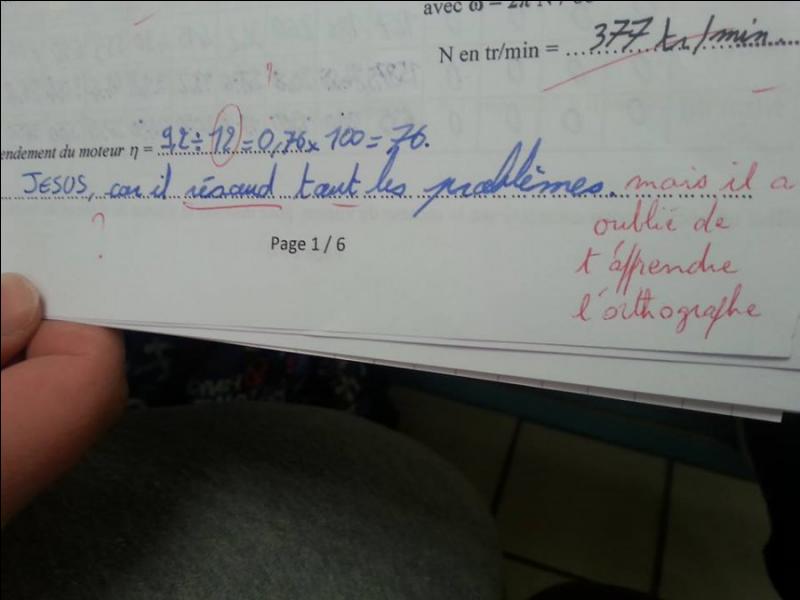 avec ω = 2π
N en tr/min = 377 tr/min
?
endement du moteur η = 9,2 ÷ 12 = 0,76 x 100 = 76.
JESUS, car il résaud taut les problèmes. mais il a
oublié de
?
t'apprendre
l'orthographe
Page 1 / 6